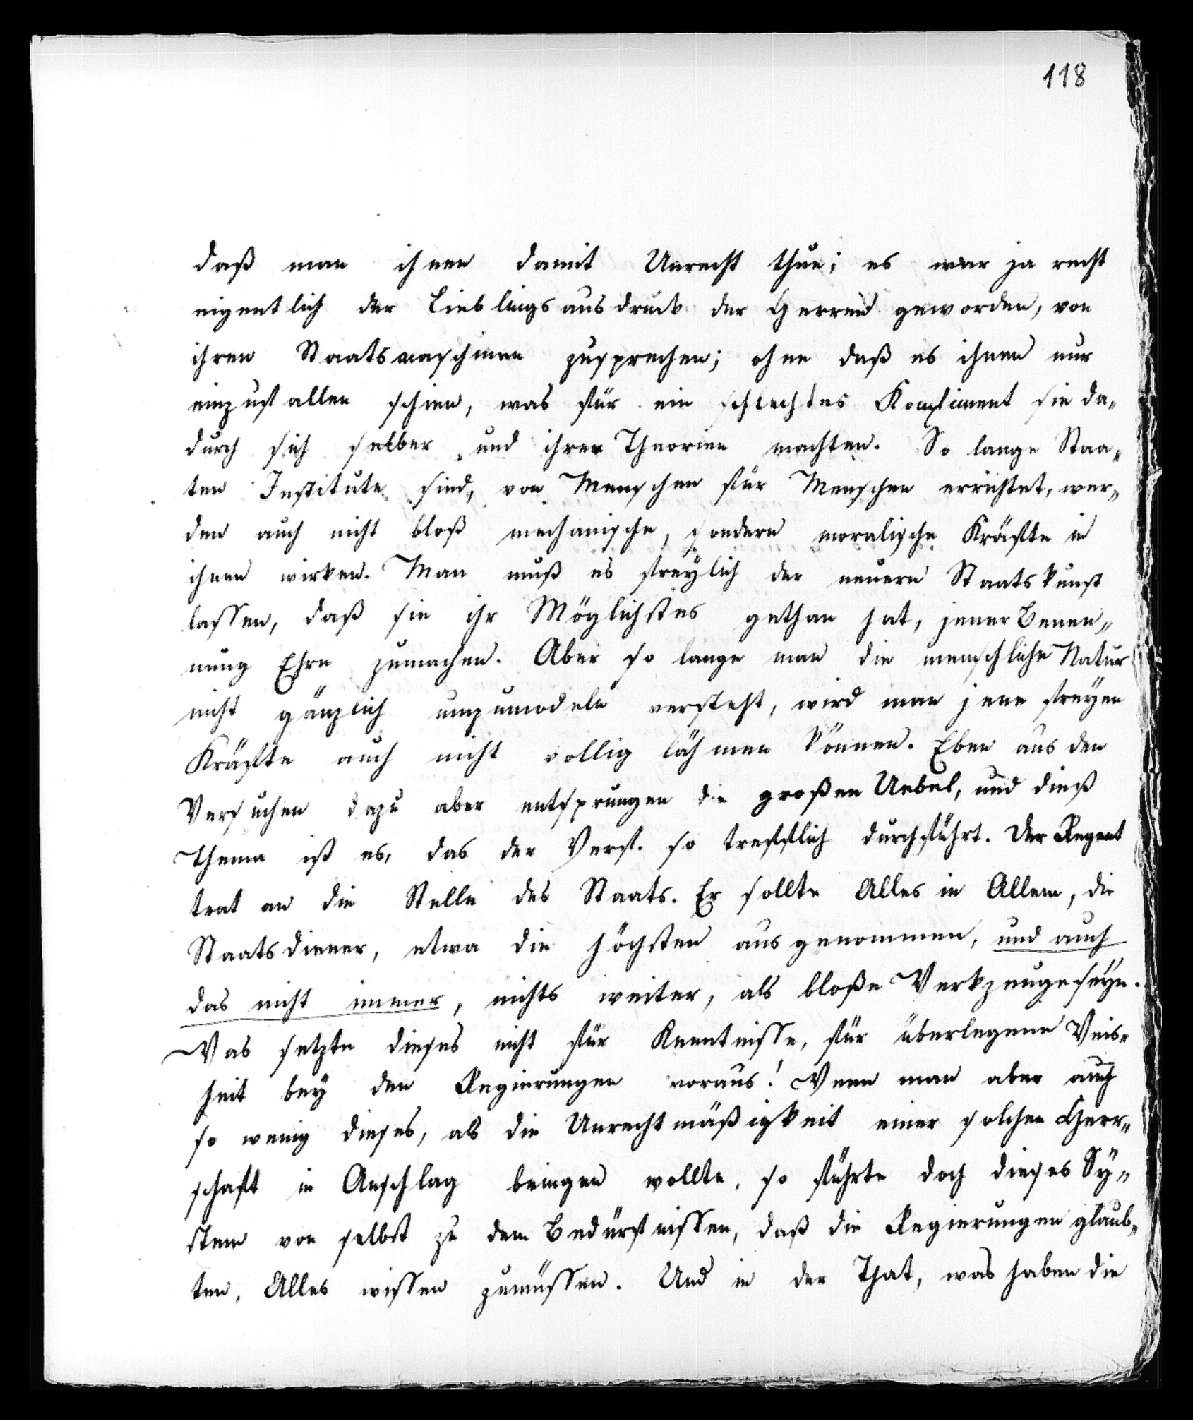 118
daß man ihnen damit Unrecht thue; es war ja recht
eigentlich der Lieblingsausdruck der Herren geworden, von
ihren Staatsmaschinen zusprechen; ohne daß es ihnen nur
einzufallen schien, was für ein schlechtes Kompliment sie da„
durch sich selber und ihrer Theorien machten. So lange Staa„
ten Institute sind, von Menschen für Menschen errichtet, wer„
den auch nicht bloß mechanische, sondern moralische Kräfte in
ihnen wirken. Man muß es freÿlich der neuern Staatskunst
lassen, daß sie ihr Möglichstes gethan hat, jener Benen„
nung Ehre zumachen. Aber so lange man die menschliche Natur
nicht gänzlich umzumodeln versteht, wird man jene freÿen
Kräfte auch nicht vollig lähmen können. Eben aus den
Versuchen dazu aber entsprungen die großen Uebel, und dieß
Thema ist es, das der Verf. so trefflich durchführt. Der Regent
trat an die Stelle des Staats. Er sollte Alles in Allem, die
Staatsdiener, etwa die höchsten ausgenommen, und auch
das nicht immer, nichts weiter, als bloße Werkzeuge seÿn.
Was setzte dieses nicht für Kenntnisse, für überlegene Weis„
heit beÿ den Regierungen voraus! Wenn man aber auch
so wenig dieses, als die Unrechtmäßigkeit einer solchen Herr„
schaft in Anschlag bringen wollte, so führte doch dieses Sÿ„
stem von selbst zu dem Bedürfnissen, daß die Regierungen glaub„
ten, Alles wissen zumüssen. Und in der That, was haben die